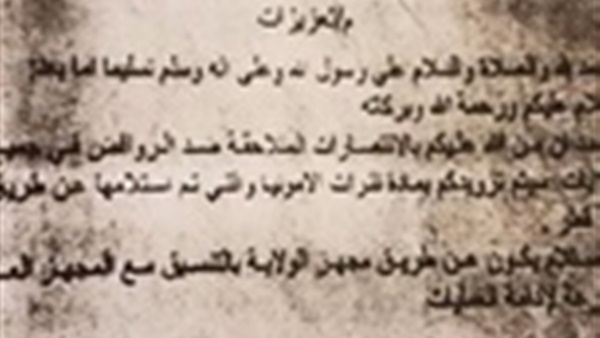 م/تعزيزات
لله والصلاة والسلام على رسول الله وعلى اله وسلم تسليما اما بعد
عليكم ورحمة الله وبركاته
من الله عليكم بالانتصارات المتلاحقة ضد الروافض في
سيتم تزويدكم بمادة نترات الامونيا والتي تم استلامها عن طريق
يكون عن طريق مجهز الولاية بالتنسيق مع المجهز
لادامة العمليات